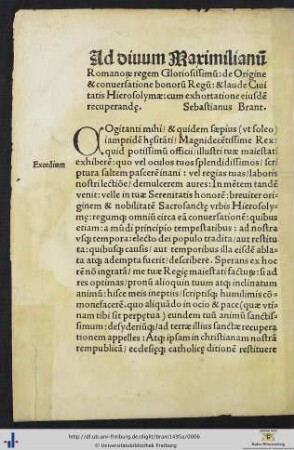 Ad diuum Maximilianū
Romanoꝝ regem Gloriosissimū: de Origine
& conuersatione bonorū Regū: & laude Ciuitatis
Hierosolymæ: cum exhortatione eiusdē
recuperandę. Sebastianus Brant.
Exordium
COgitanti mihi/ & quidem sæpius (vt soleo)
iampridē hęsitāti/ Magnidecētissime Rex:
quid potissimū officii/ illustri tuæ maiestati
exhiberē: quo vel oculus tuos splendidissimos/ scriptura
saltem pascerē inani: vel regias tuas/ laboris
nostri lectiōe/ demulcerem aures: In mētem tandē
venit: velle in tuæ Serenitatis honorē: breuiter originem
& nobilitatē Sacrosanctę vrbis Hierosolymę:
regumqꝫ omniū circa eā conuersationē: quibus
etiam: a mūdi principio tempestatibus: ad nostra
vsqꝫ tempora: electo dei populo tradita/ aut restituta:
quibusqꝫ causis/ aut temporibus illa eisdē ablata
atqꝫ adempta fuerit/ describere. Sperans ex hoc
rē nō ingratā/ me tuæ Regię maiestati facturū: si ad
res optimas/ pronū alioquin tuum atqꝫ inclinatum
animū: hisce meis ineptis/ scriptisqꝫ humilimis cōmonefacerē:
quo aliquādo in ocio & pace (quæ vtinam
tibi sit perpetua) eundem tuū animū sanctissimum:
desyderiūqꝫ/ ad terræ illius sanctæ recuperationem
appelles: Atqꝫ ipsam in christianam nostrā
rempublicā/ ecclesięqꝫ catholicę ditionē restituere
http://dl.ub.uni-freiburg.de/diglit/brant1495a/0006
© Universitätsbibliothek Freiburg